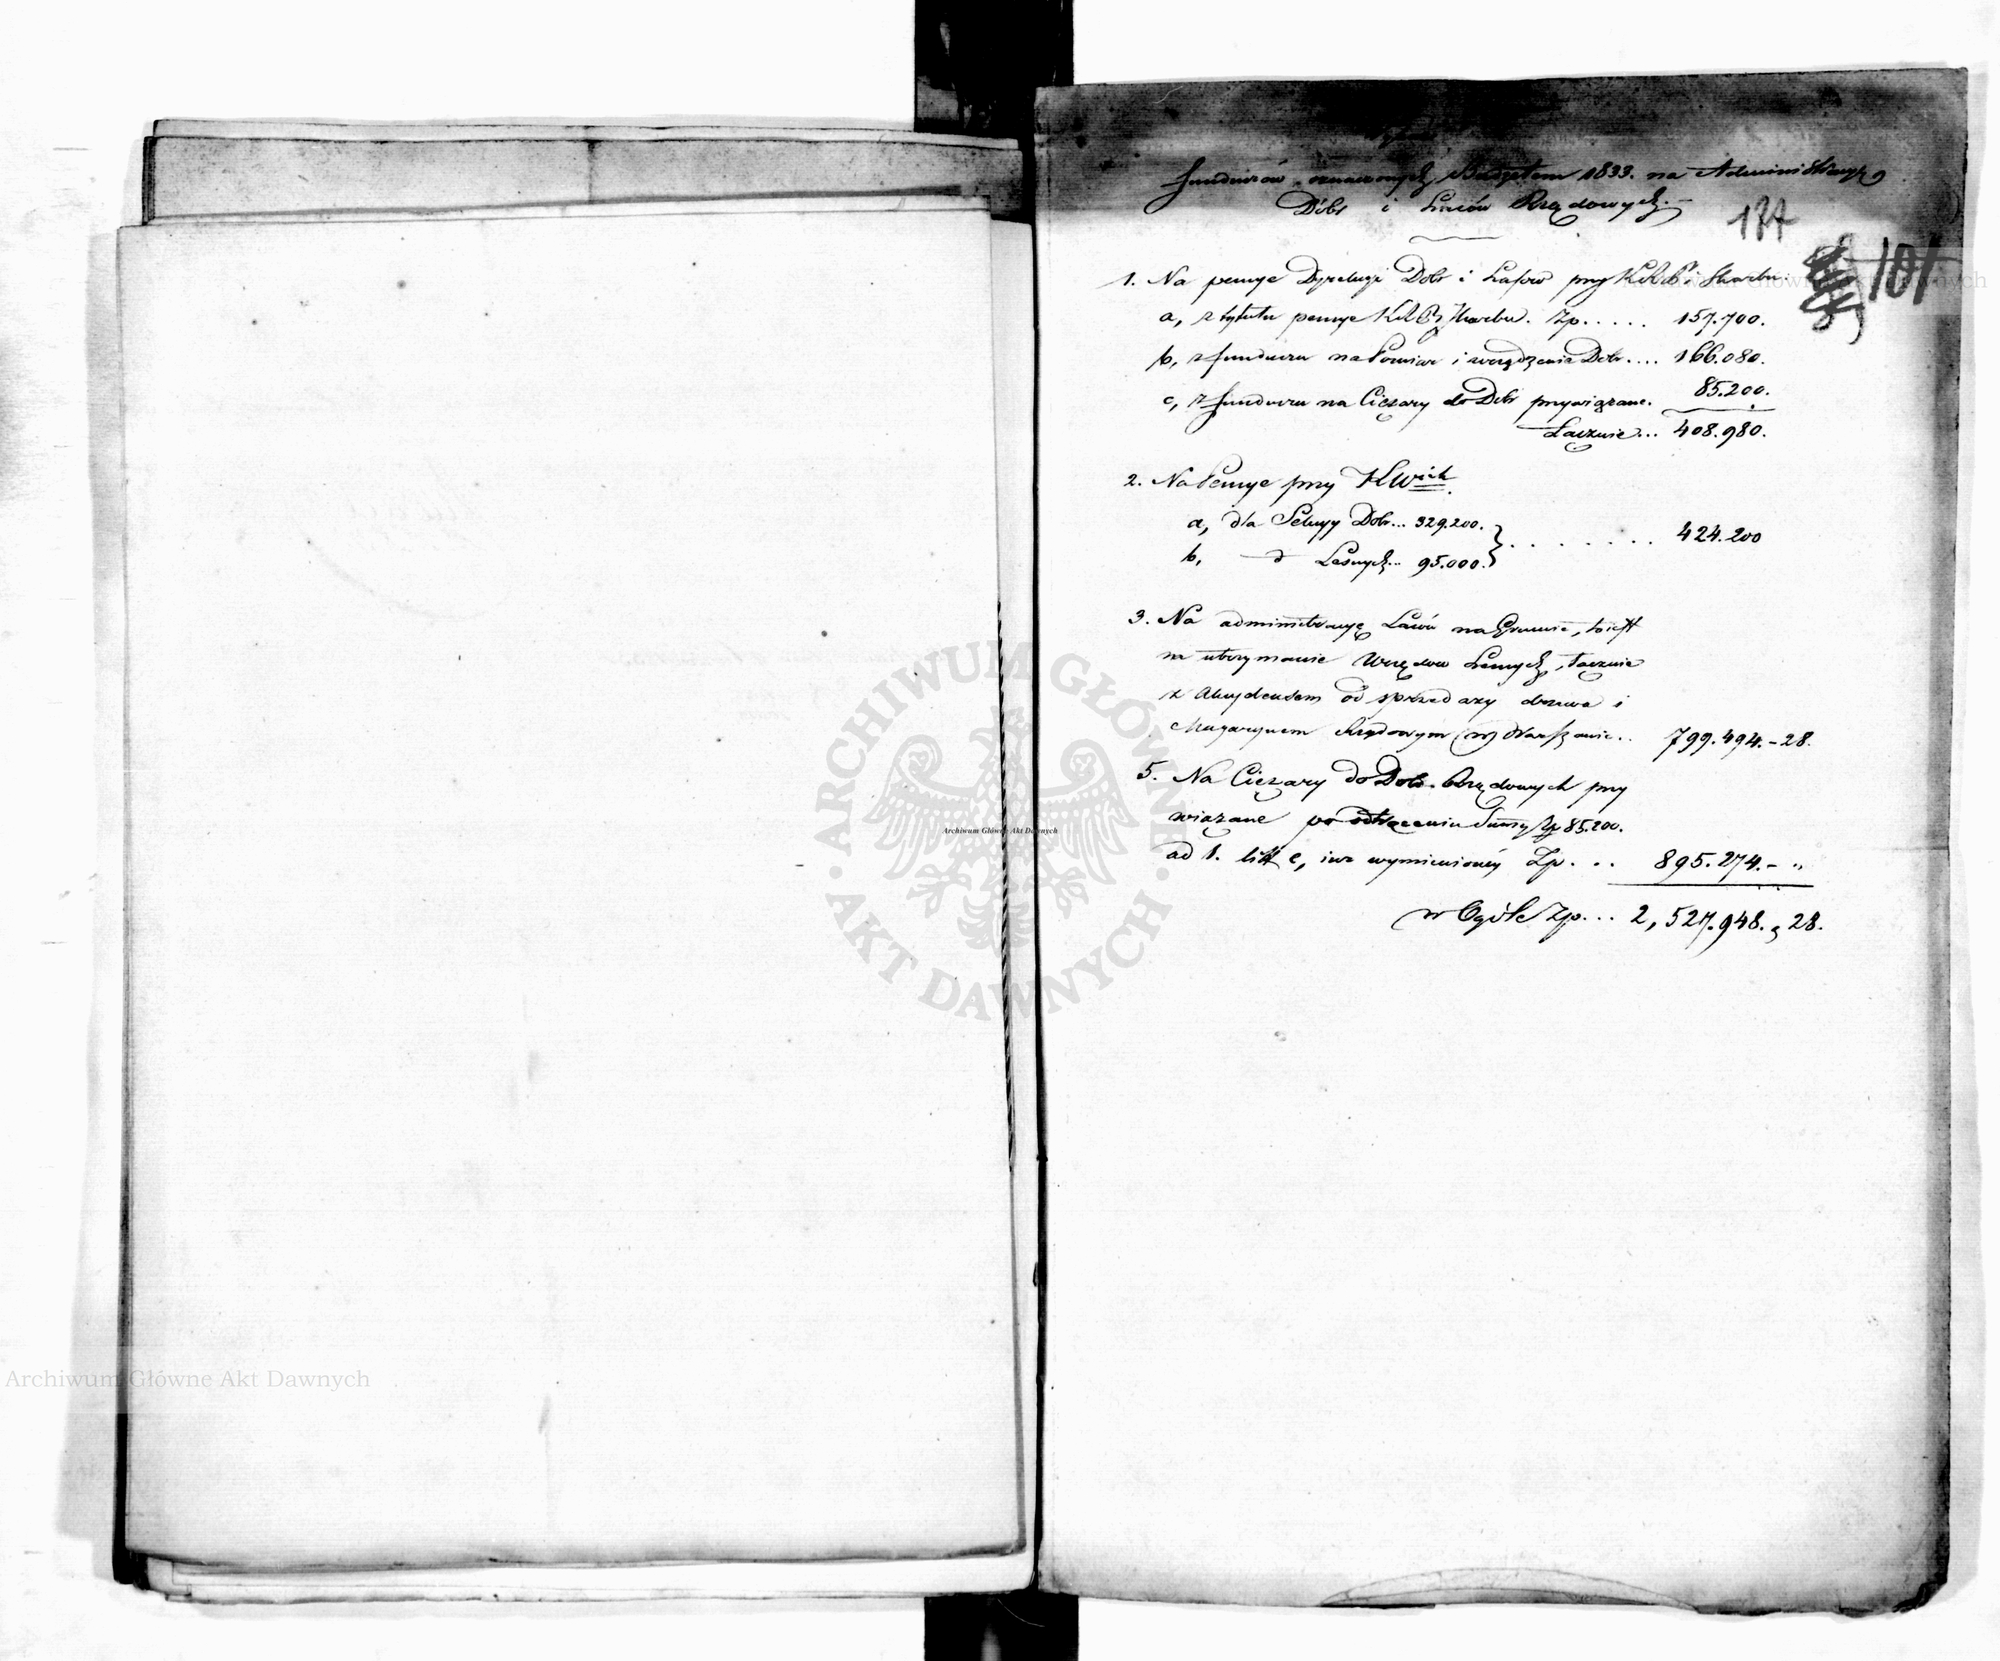 funduszów oznaczonych Budżetem 1833. na Administracyę
Dóbr i Lasów Rządowych.
177
101
1. Na pensye Dyrekcyi Dóbr i Lasów przy KRP i Skarbu.
a, z tytułu pensye KRP i Skarbu. Zp..... 157.700.
b, z funduszu na Pomiar i urządzenie Dóbr.... 166.080.
c, z funduszu na Ciężary do Dóbr przywiązane. 85.200.
Łącznie... 408.980.
2. Na Pensye przy KWich
a, dla Sekcyy Dóbr... 329.200.
b, d Leśnych... 95.000. ........ 424.200
3. Na administracyę Lasów na Gruncie, to iest
na utrzymanie Urzędów Leśnych, łącznie
z Akcydensem od sprzedaży drzewa i
Magazynem Rządowym w Warszawie.. 799.494.-28.
5. Na Ciężary do Dóbr Rządowych przy
wiązane po odtrąceniu Summy Zp 85.200.
ad 1. litt c, iuż wymienionéy Zp... 895.274.- "
w Ogóle Zp... 2,527.948.,28.
Archiwum Główne Akt Dawnych
ARCHIWUM GŁÓWNE AKT DAWNYCH
Archiwum Główne Akt Dawnych
Archiwum Główne Akt Dawnych